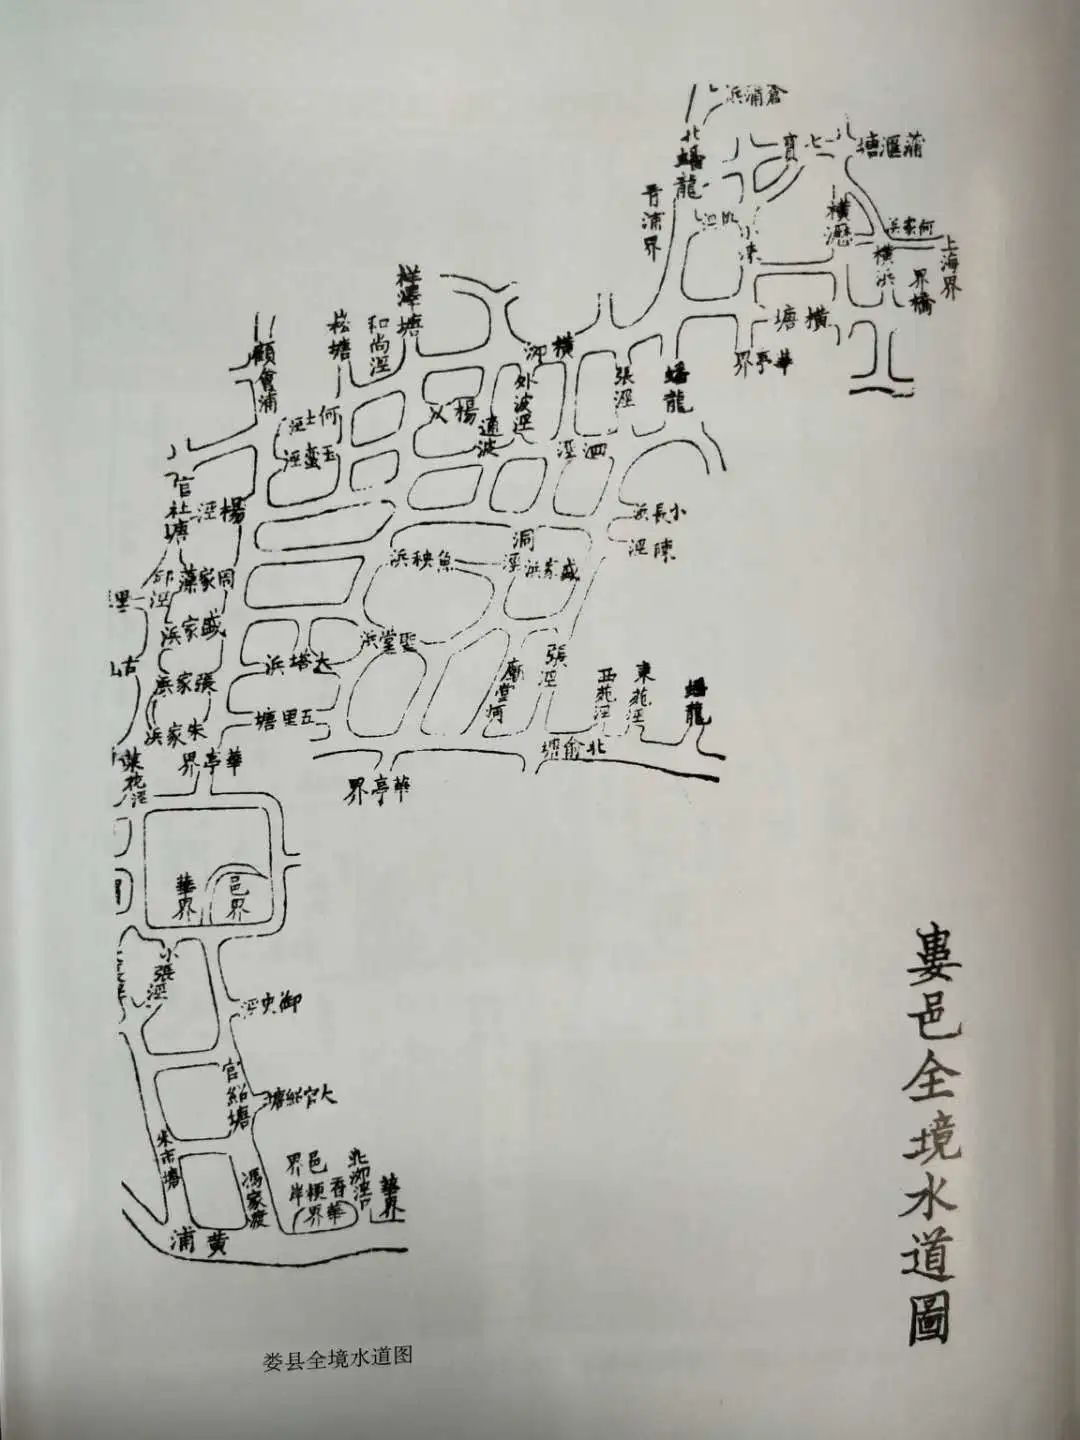 倉浦浜
北蟠龍
七寶
蒲滙塘
青浦界
橫瀝
何家浜
上海界
橫浜
界橋
小涞
橫塘
華亭界
祥澤塘
和尚涇
松塘
顧會浦
橫泖
外波涇
張涇
蟠龍
何士涇
玉蛮涇
楊
通波
泗涇
官社塘
楊涇
小長浜
陳涇
洞涇
盛家浜
魚秧浜
邱涇
周家藻
盛家浜
張家浜
朱家浜
聖堂浜
大塔浜
五里塘
廟堂河
張涇
西苑涇
東苑涇
蟠龍
北俞塘
華亭界
華亭界
菜花涇
華界
邑界
小張涇
御史涇
官紹塘
大官紹塘
米市塘
馮家渡
邑界
北泖涇口
華界
黄浦
婁邑全境水道圖
娄县全境水道图